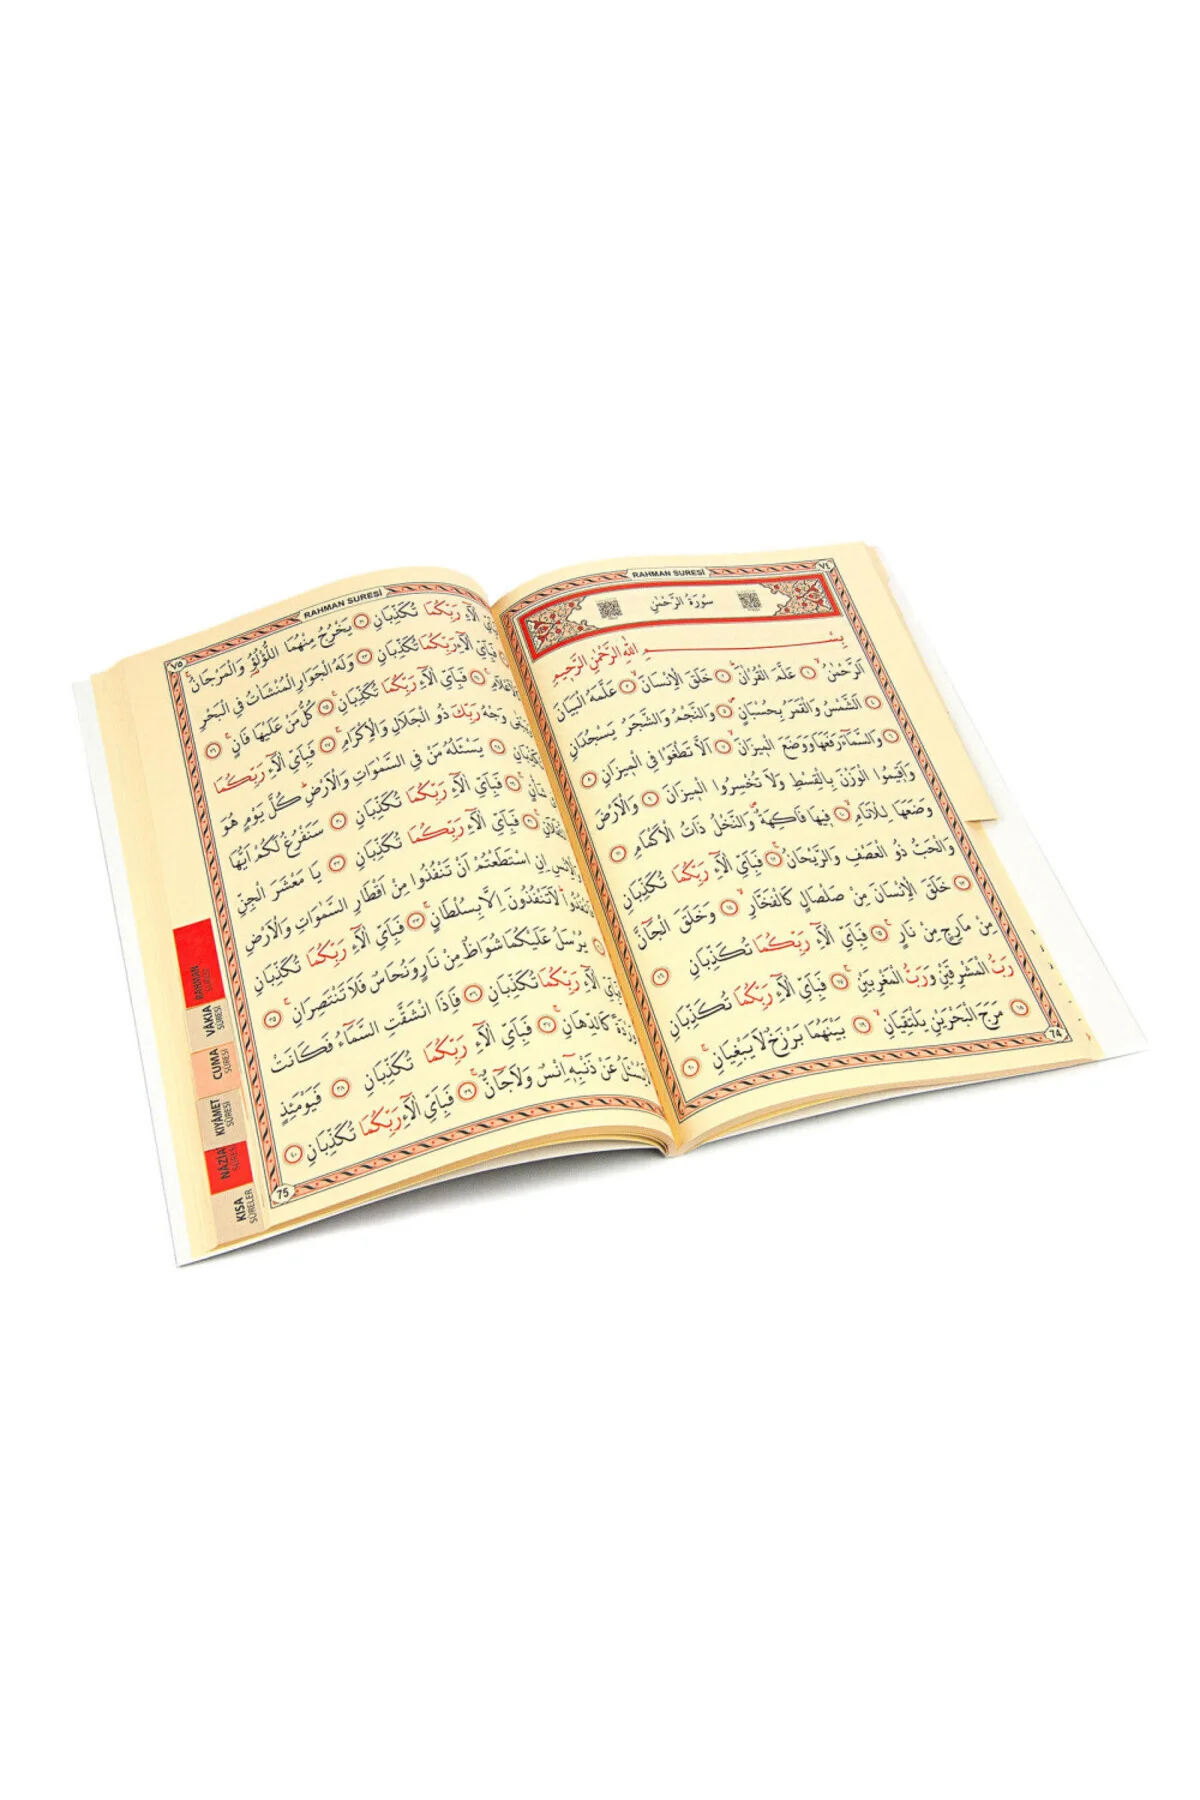 RAHMAN SURESİ
٧٤
سُورَةُ الرَّحْمٰنِ
بِسْمِ اللهِ الرَّحْمٰنِ الرَّحِيمِ
اَلرَّحْمٰنُۙ ١ عَلَّمَ الْقُرْاٰنَۜ ٢ خَلَقَ الْاِنْسَانَۙ ٣ عَلَّمَهُ الْبَيَانَ
٤ اَلشَّمْسُ وَالْقَمَرُ بِحُسْبَانٍۖ ٥ وَالنَّجْمُ وَالشَّجَرُ يَسْجُدَانِ
٦ وَالسَّمَٓاءَ رَفَعَهَا وَوَضَعَ الْمِيزَانَۙ ٧ اَلَّا تَطْغَوْا فِي الْمِيزَانِ ٨
وَاَقِيمُوا الْوَزْنَ بِالْقِسْطِ وَلَا تُخْسِرُوا الْمِيزَانَ ٩ وَالْاَرْضَ
وَضَعَهَا لِلْاَنَامِۙ ١٠ فِيهَا فَاكِهَةٌۖ وَالنَّخْلُ ذَاتُ الْاَكْمَامِ ١١
وَالْحَبُّ ذُو الْعَصْفِ وَالرَّيْحَانُۚ ١٢ فَبِاَيِّ اٰلَٓاءِ رَبِّكُمَا تُكَذِّبَانِ
١٣ خَلَقَ الْاِنْسَانَ مِنْ صَلْصَالٍ كَالْفَخَّارِۙ ١٤ وَخَلَقَ الْجَٓانَّ
مِنْ مَارِجٍ مِنْ نَارٍۚ ١٥ فَبِاَيِّ اٰلَٓاءِ رَبِّكُمَا تُكَذِّبَانِ ١٦
رَبُّ الْمَشْرِقَيْنِ وَرَبُّ الْمَغْرِبَيْنِۚ ١٧ فَبِاَيِّ اٰلَٓاءِ رَبِّكُمَا تُكَذِّبَانِ
١٨ مَرَجَ الْبَحْرَيْنِ يَلْتَقِيَانِۙ ١٩ بَيْنَهُمَا بَرْزَخٌ لَا يَبْغِيَانِۚ ٢٠
74
RAHMAN SURESİ
٧٥
اٰلَٓاءِ رَبِّكُمَا تُكَذِّبَانِ ٢١ يَخْرُجُ مِنْهُمَا اللُّؤْلُؤُ۬ وَالْمَرْجَانُۚ
فَبِاَيِّ اٰلَٓاءِ رَبِّكُمَا تُكَذِّبَانِ ٢٣ وَلَهُ الْجَوَارِ الْمُنْشَاٰتُ فِي الْبَحْرِ
فَبِاَيِّ اٰلَٓاءِ رَبِّكُمَا تُكَذِّبَانِ۟ ٢٥ كُلُّ مَنْ عَلَيْهَا فَانٍۚ ٢٦
وَجْهُ رَبِّكَ ذُو الْجَلَالِ وَالْاِكْرَامِۚ ٢٧ فَبِاَيِّ اٰلَٓاءِ رَبِّكُمَا
٢٨ يَسْـَٔلُهُ مَنْ فِي السَّمٰوَاتِ وَالْاَرْضِۜ كُلَّ يَوْمٍ هُوَ
٢٩ فَبِاَيِّ اٰلَٓاءِ رَبِّكُمَا تُكَذِّبَانِ ٣٠ سَنَفْرُغُ لَكُمْ اَيُّهَ
٣١ فَبِاَيِّ اٰلَٓاءِ رَبِّكُمَا تُكَذِّبَانِ ٣٢ يَا مَعْشَرَ الْجِنِّ
وَالْاِنْسِ اِنِ اسْتَطَعْتُمْ اَنْ تَنْفُذُوا مِنْ اَقْطَارِ السَّمٰوَاتِ وَالْاَرْضِ
فَانْفُذُواۜ لَا تَنْفُذُونَ اِلَّا بِسُلْطَانٍۚ ٣٣ فَبِاَيِّ اٰلَٓاءِ رَبِّكُمَا تُكَذِّبَانِ
يُرْسَلُ عَلَيْكُمَا شُوَاظٌ مِنْ نَارٍ وَنُحَاسٌ فَلَا تَنْتَصِرَانِۚ ٣٥
اٰلَٓاءِ رَبِّكُمَا تُكَذِّبَانِ ٣٦ فَاِذَا انْشَقَّتِ السَّمَٓاءُ فَكَانَتْ
كَالدِّهَانِۚ ٣٧ فَبِاَيِّ اٰلَٓاءِ رَبِّكُمَا تُكَذِّبَانِ ٣٨ فَيَوْمَئِذٍ
عَنْ ذَنْبِهٖٓ اِنْسٌ وَلَا جَٓانٌّۚ ٣٩ فَبِاَيِّ اٰلَٓاءِ رَبِّكُمَا تُكَذِّبَانِ ٤٠
75
RAHMAN
VAKIA
SÛRESİ
CUMA
SÛRESİ
KIYÂMET
SÛRESİ
NÂZİA
SÛRESİ
KISA
SÛRELER